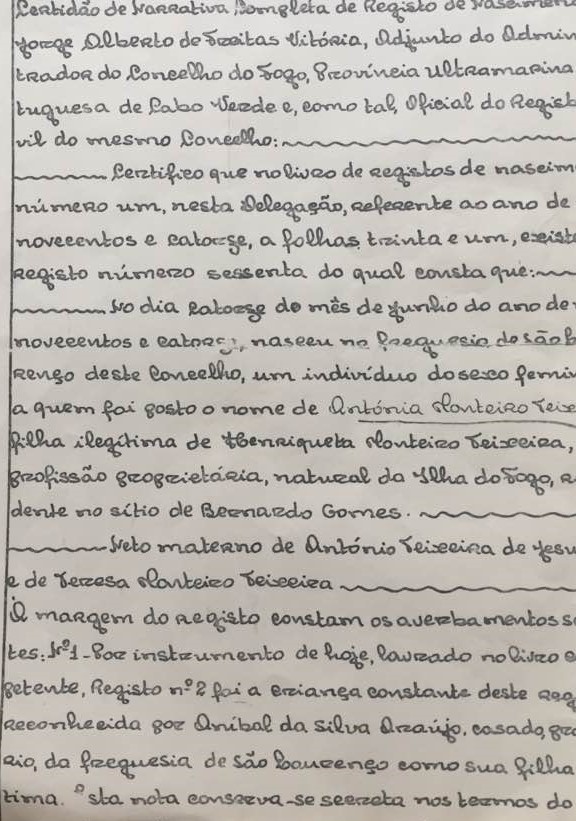 Certidão de Narrativa Completa de Registo de Nascimen
Jorge Alberto de Freitas Vitória, Adjunto do Admin
trador do Concelho do Fogo, Província Ultramarina
tuguesa de Cabo Verde e, como tal, Oficial do Regist
vil do mesmo Concelho:
Certifico que no livro de registos de nascim
número um, nesta Delegação, referente ao ano de
novecentos e catorze, a folhas trinta e um, existe
Registo número sessenta do qual consta que:
No dia catorze do mês de Junho do ano de
novecentos e catorze, nasceu na freguesia de são L
renço deste Concelho, um indivíduo do sexo femi
a quem foi posto o nome de Antónia Monteiro Teixe
filha ilegítima de Henriqueta Monteiro Teixeira,
profissão proprietária, natural da Ilha do Fogo, r
dente no sítio de Bernardo Gomes.
Neto materno de António Teixeira de Jesu
e de Tereza Monteiro Teixeira
À margem do registo constam os averbamentos s
tes: Nº1-Por instrumento de hoje, lavrado no livro c
petente, Registo nº2 foi a criança constante deste reg
reconhecida por Aníbal da Silva Araújo, casado, pro
rio, da freguesia de são Lourenço como sua filha
tima. Esta nota conserva-se secreta nos termos do